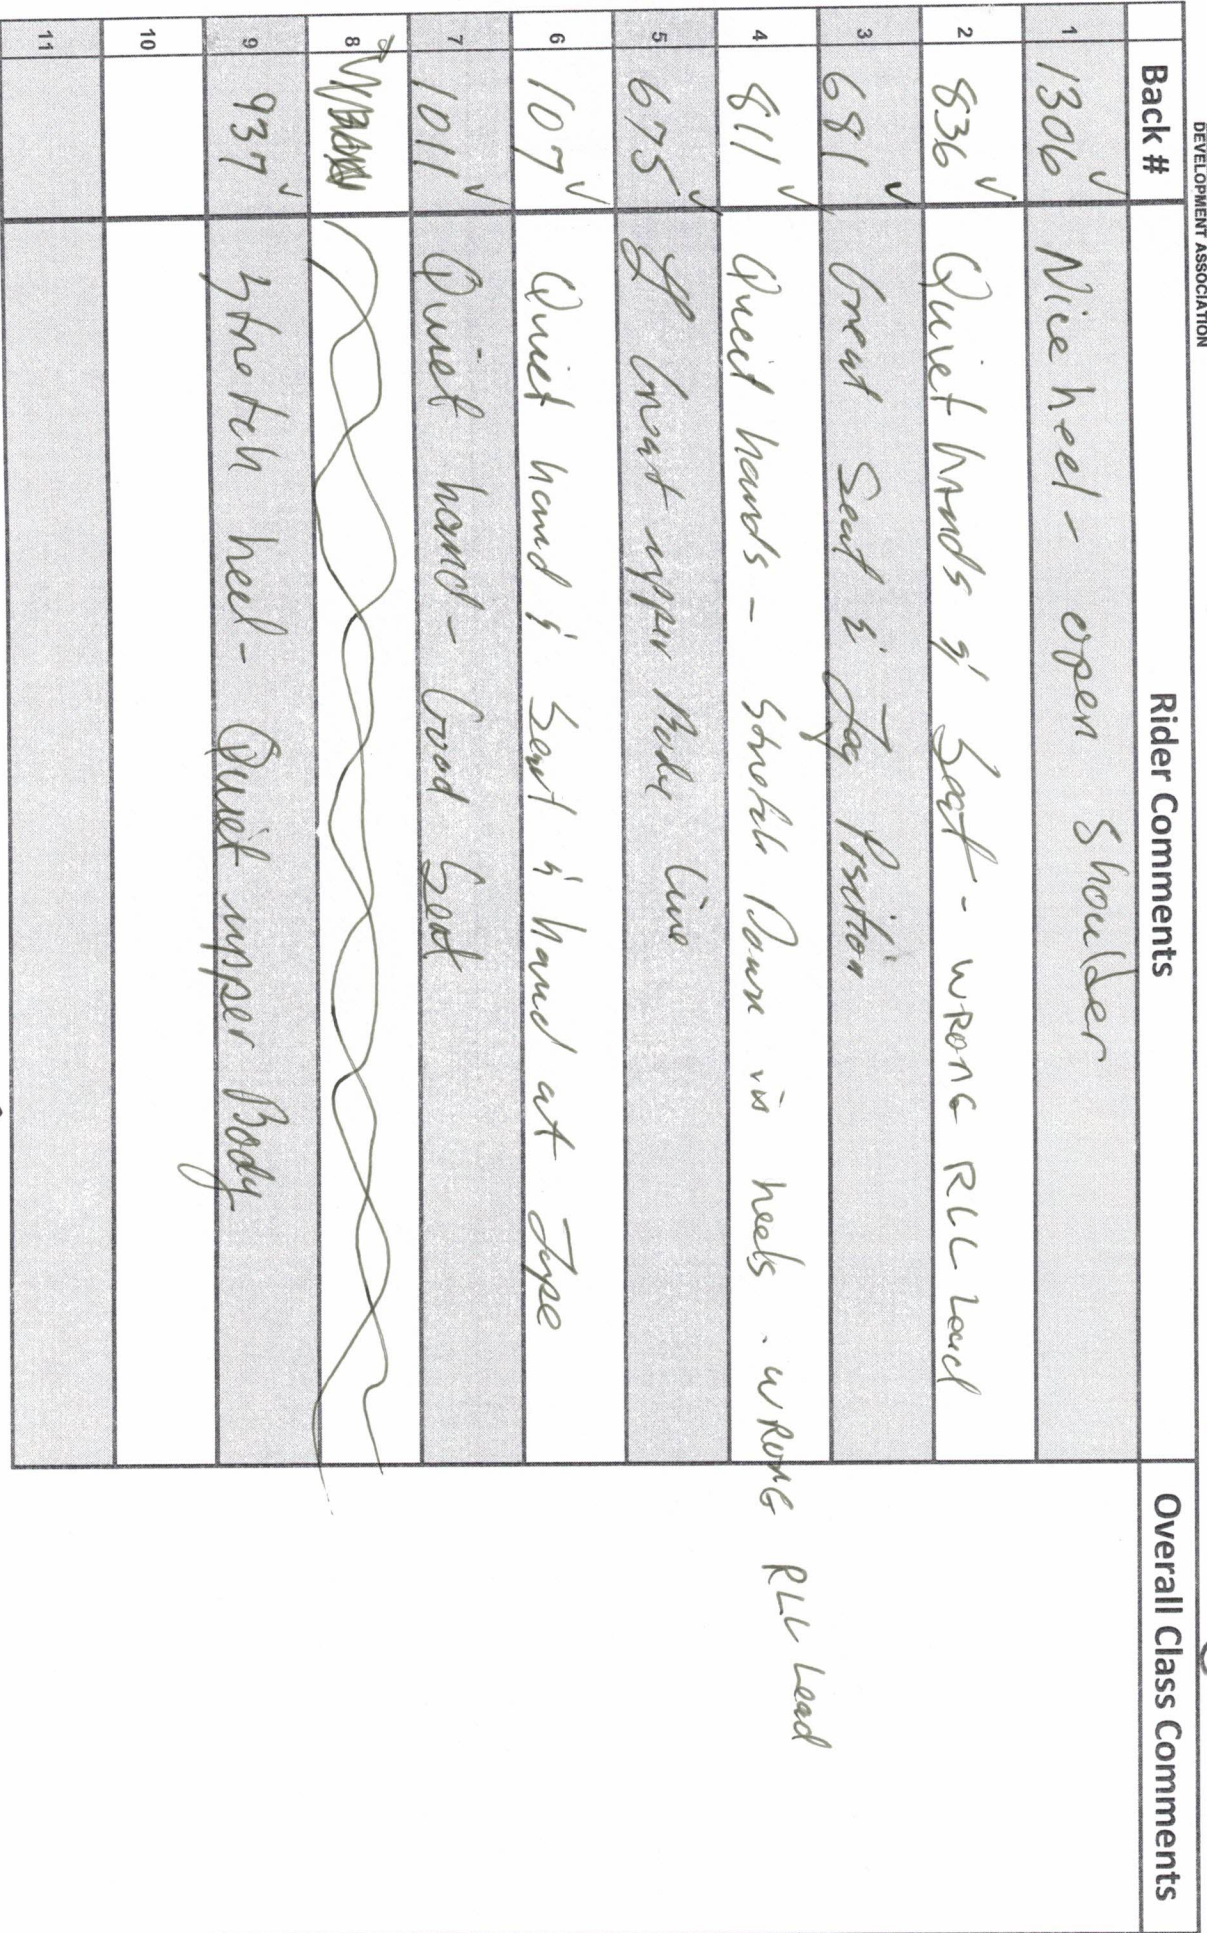 DEVELOPMENT ASSOCIATION
Back # Rider Comments Overall Class Comments
1 1306 ✓ Nice heel - open shoulder
2 836 ✓ Quiet hands & Seat - WRONG RLL Lead
3 681 ✓ Great Seat & Leg Position
4 811 ✓ Queit hands - Stretch Down in heels . WRONG RLL Lead
5 675 ✓ Great upper Body line
6 107 ✓ Quiet hand & Seat & hand at
7 1011 ✓ Quiet hand - Good Seat
8
9 937 ✓ Stretch heel - Quiet upper Body
10
11